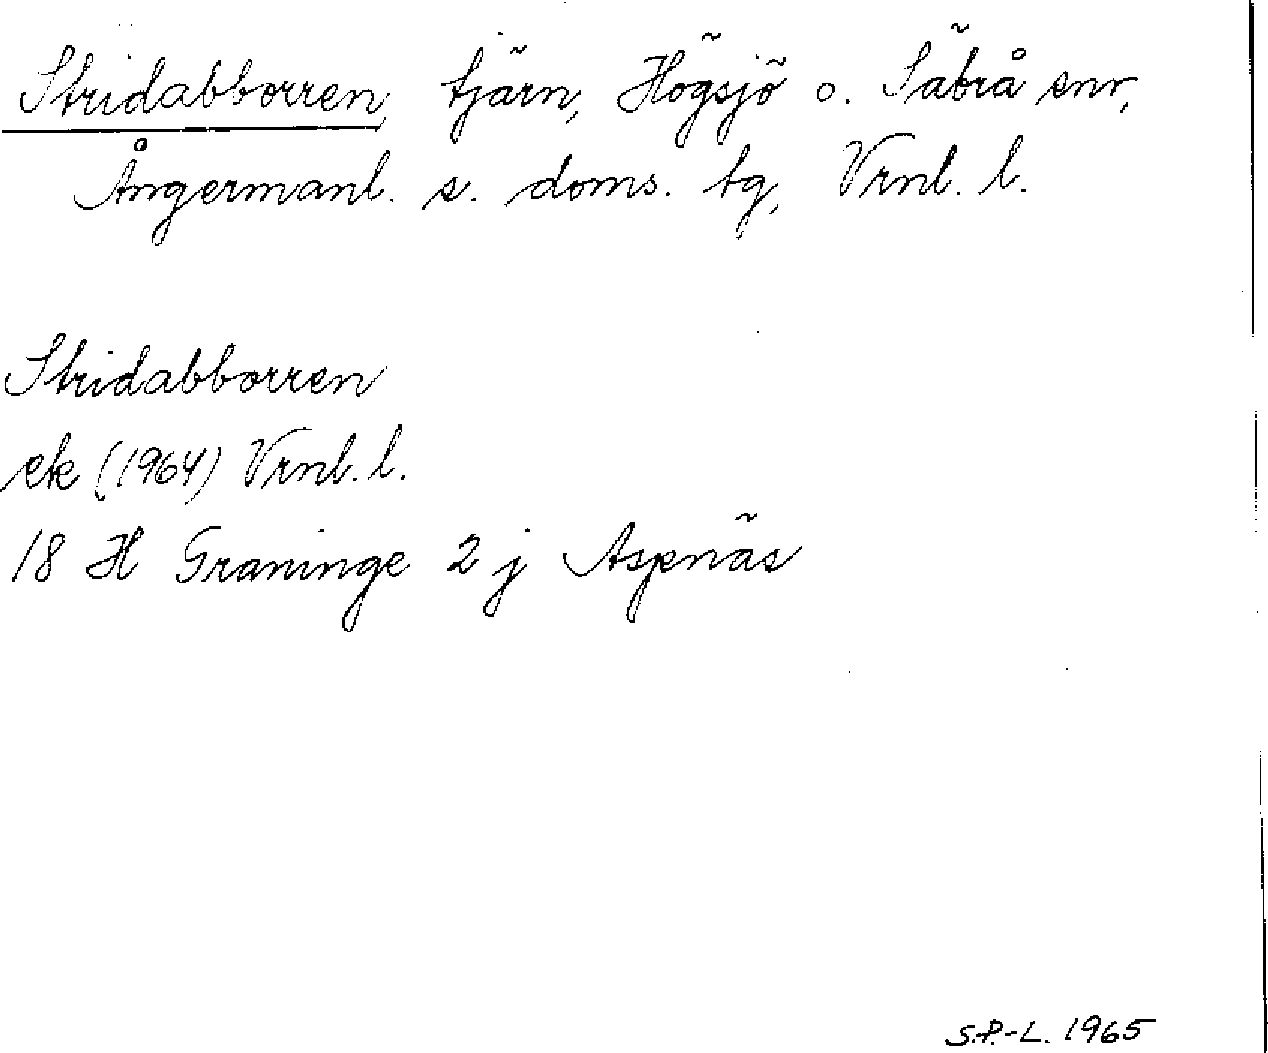 Stridabborren, tjärn, Högsjö o. Säbrå snr,
Ångermanl. s. doms. tg, Vrnl. l.
Stridabborren
ek (1964) Vrnl. l.
18 H Graninge 2 j Aspnäs
S.P.-L. 1965